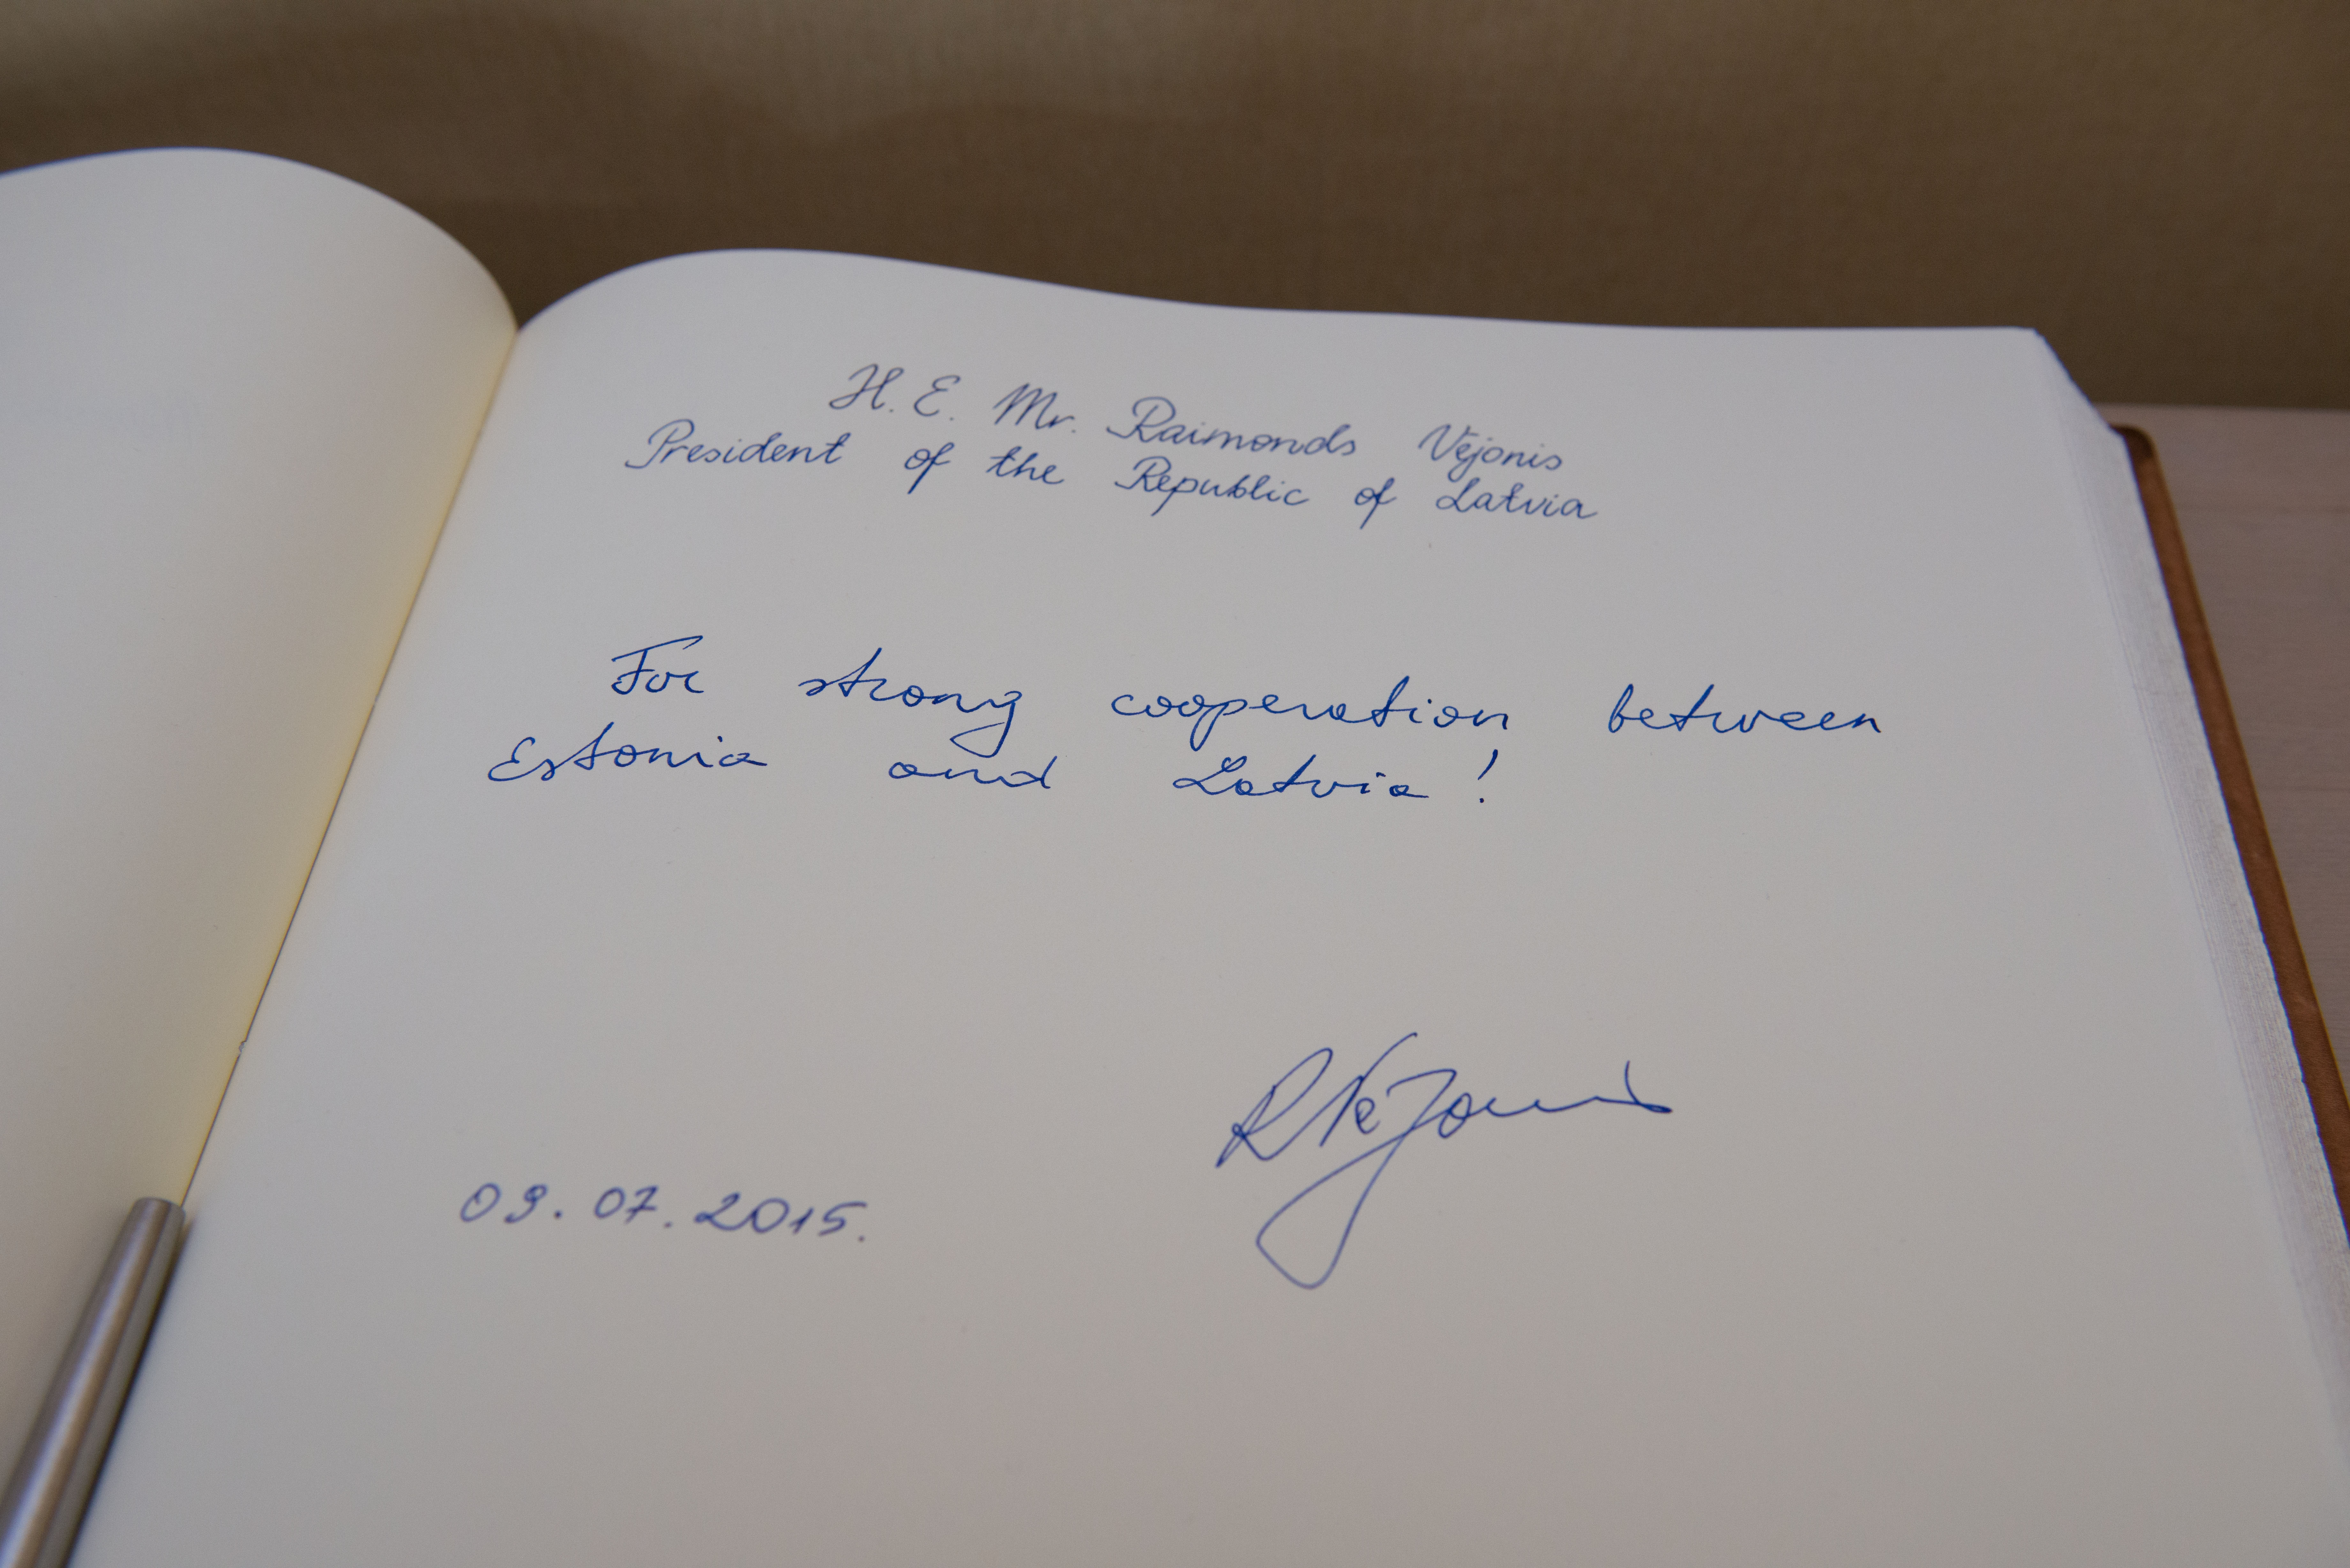 H. E. Mr. Raimonds Vējonis
President of the Republic of Latvia
For strong cooperation between
Estonia and Latvia!
RVējonis
09. 07. 2015.